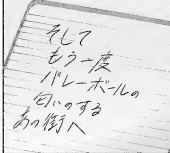 そして
もう一度
バレーボールの
匂いのする
あの街へ